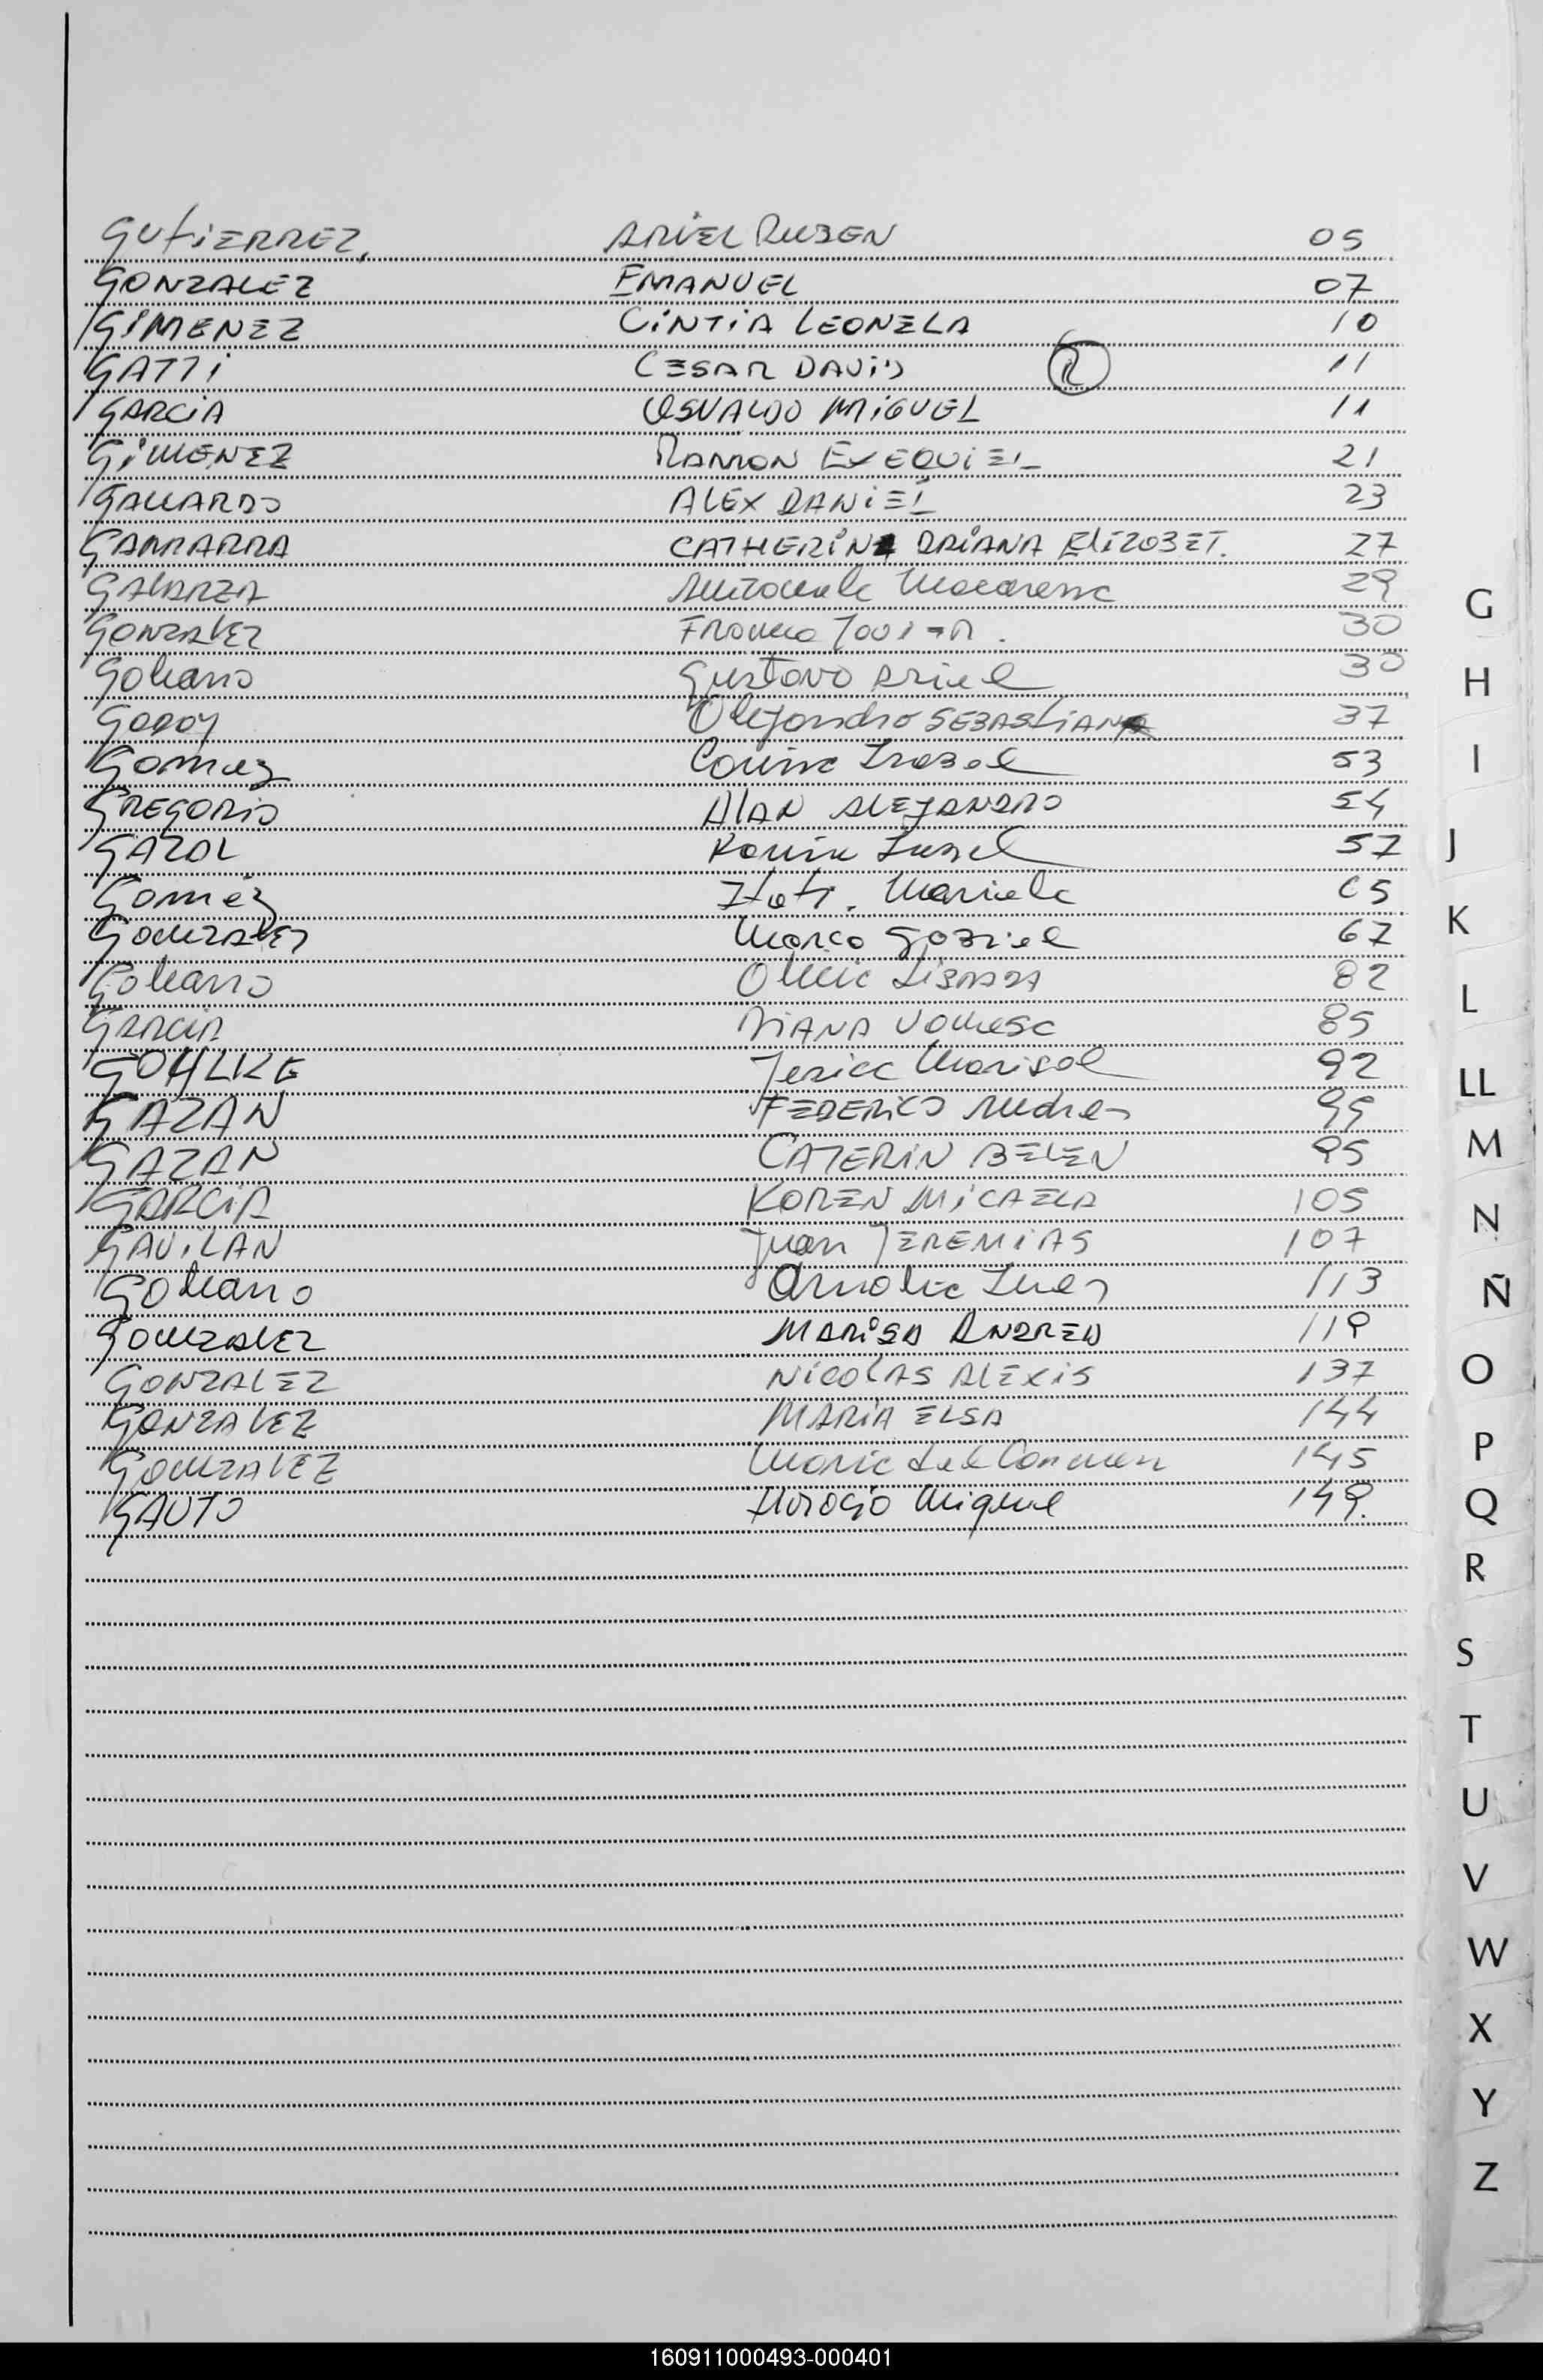 GUTIERREZ, ARIEL RUBEN 05
GONZALEZ EMANUEL 07
GIMENEZ CINTIA LEONELA 10
GATTI CESAR DAVID 11
GARCIA OSVALDO MIGUEL 11
GIMENEZ RAMON EXEQUIEL 21
GALLARDO ALEX DANIEL 23
GAMARRA CATHERINA ORIANA ELIZABET. 27
GALARZA Macarena 29
GONZALEZ Franco 30
Galeano Gustavo Ariel 30
GODOY Alejandro SEBASTIAN 37
Gomez Isabel 53
GREGORIO ALAN ALEJANDRO 54
GAZAL Karina Isabel 57
Gomez Itati. Mariela 65
GONZALEZ Marco Gabriel 67
Galeano 82
GARCIA DIANA Vanesa 85
GOHLKE Jesica Marisol 92
GAZAN FEDERICO Andres 95
GAZAN CATERIN BELEN 95
GARCIA KAREN MICAELA 105
GAVILAN Juan JEREMIAS 107
Galeano Analia Ines 113
GONZALEZ MARISA ANDREA 119
GONZALEZ NICOLAS ALEXIS 137
GONZALEZ MARIA ELSA 144
GONZALEZ Maria del Carmen 145
GAUTO Horacio Miguel 149.
G
H
I
J
K
L
LL
M
N
Ñ
O
P
Q
R
S
T
U
V
W
X
Y
Z
160911000493-000401